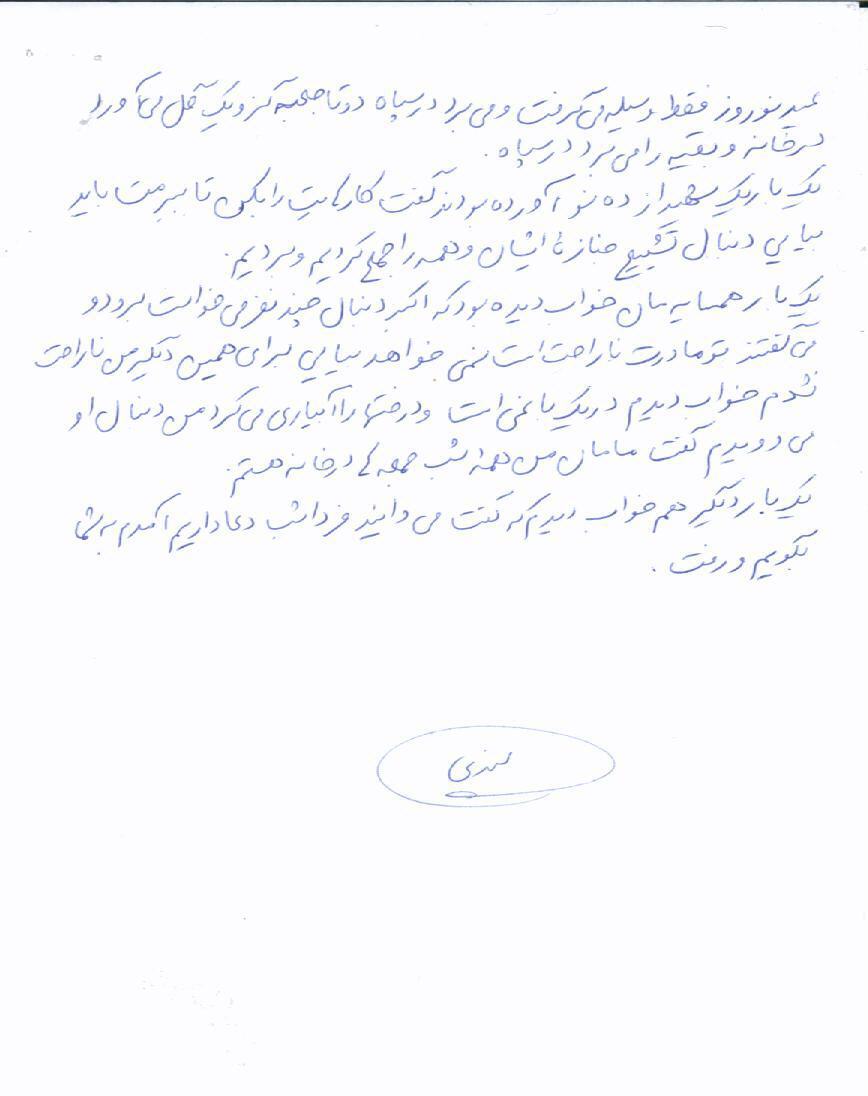 عید نوروز فقط وسیله می گرفت و می برد در سپاه دو تا جعبه گز و یک آجیل می آورد
در خانه و بقیه را می برد در سپاه.
یک بار یک شهید از ده نو آورده بودند گفت کارهایت را بکن تا ببرمت باید
بیایی دنبال تشییع جنازهٔ ایشان و همه را جمع کردیم و بردیم.
یک بار همسایه مان خواب دیده بود که اکبر دنبال چند نفر می خواست برود و
می گفتند تو مادرت ناراحت است نمی خواهد بیایی برای همین دیگر من ناراحت
نشدم خواب دیدم در یک باغی است و درختها را آبیاری می کرد من دنبال او
می دویدم گفت مامان من همه شب جمعه ها در خانه هستم.
یک بار دیگر هم خواب دیدم که گفت می دانید فردا شب دعا داریم آمدم به شما
بگویم و رفت.